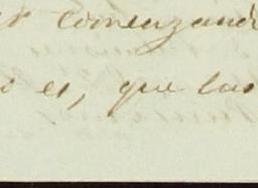 comenzand
o es, que las